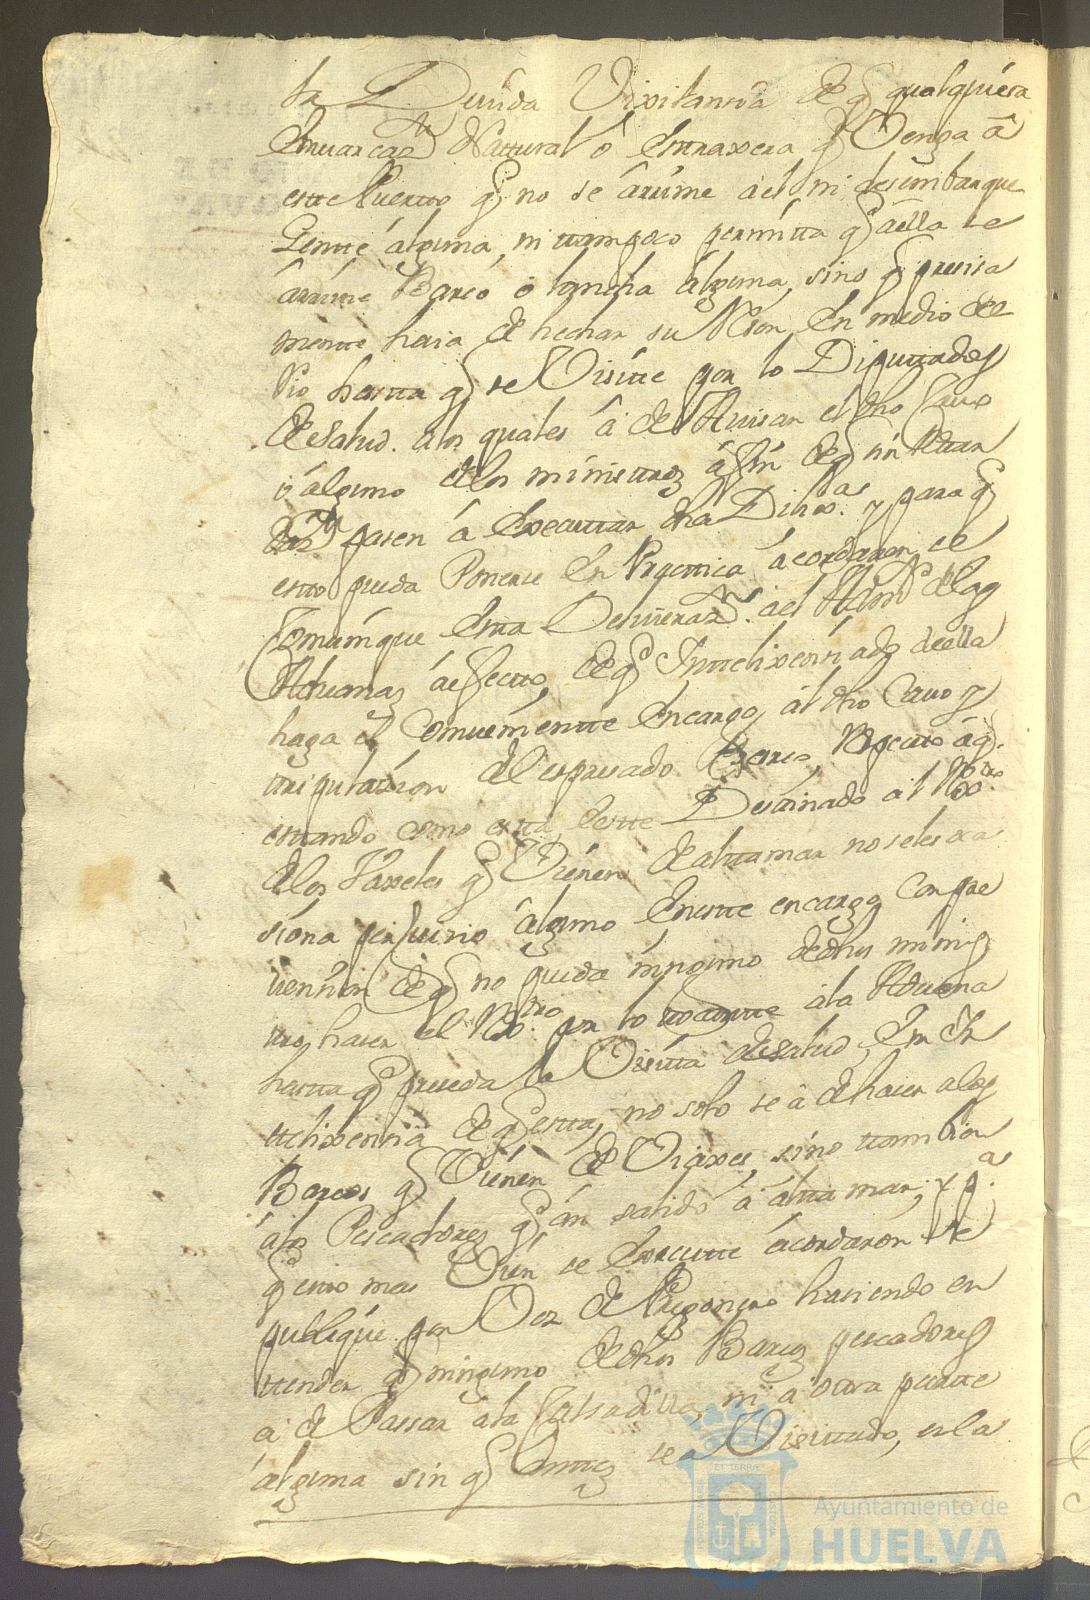 la Devida Vixilancia de q̃ qualquiera
Emvarcaz.on Natural ò Extraxera q̃ Venga â
este Puerto q̃ no se ârrime a el ni desembarque
Jente âlguna, ni tampoco permitta q̃ aêlla se
ârrime Barco ô lancha âlguna, sino q̃ precisa
mente haia de hechar su Neon En medio del
Rio hasta q̃ se Visite por lo Diputtados
de Salud. a los quales â de Avisar el dho Cavo
û âlguno de los ministros â fin de q̃ sin
pasen â Executtar dha Dilix.as y para q̃
esto pueda Ponerse En Practtica âcordaron se
Comunique Esta Deliveraz.on a el Adm.or de las
Aduanas âefecto de q̃ Intelixenciado de ella
haga el Combeniente Encargo, al dho Cavo y
tripulacion del expresado Barco, Respecto â q̃
estando como esta, este Destinado al Rexro.
de los Vaxeles q̃ Vienen de altamar no se les oca
siona perjuicio âlguno En este encargo Con pre
vencion de q̃ no pueda ninguno de dhos minis
tros hacer el Rexro. por lo tocante a la Aduana
hasta q̃ preceda la Visita de Salud, En In
telixencia de q̃ esta, no solo se â de hacer a los
Barcos q̃ Vienen de Viaxes, sino tambien
â los Pescadores q̃ ân salido â alta mar, y p.a
q̃ esto mas Vien se Executte âcordaron se
publique por Voz de Pregonero haciendo en
tender q̃ ninguno de dhos Barcos pescadores
â de Passar a la Calzadilla, ni â otra parte
âlguna sin q̃ Antes sea Visittado, en la
Ayuntamiento de
HUELVA